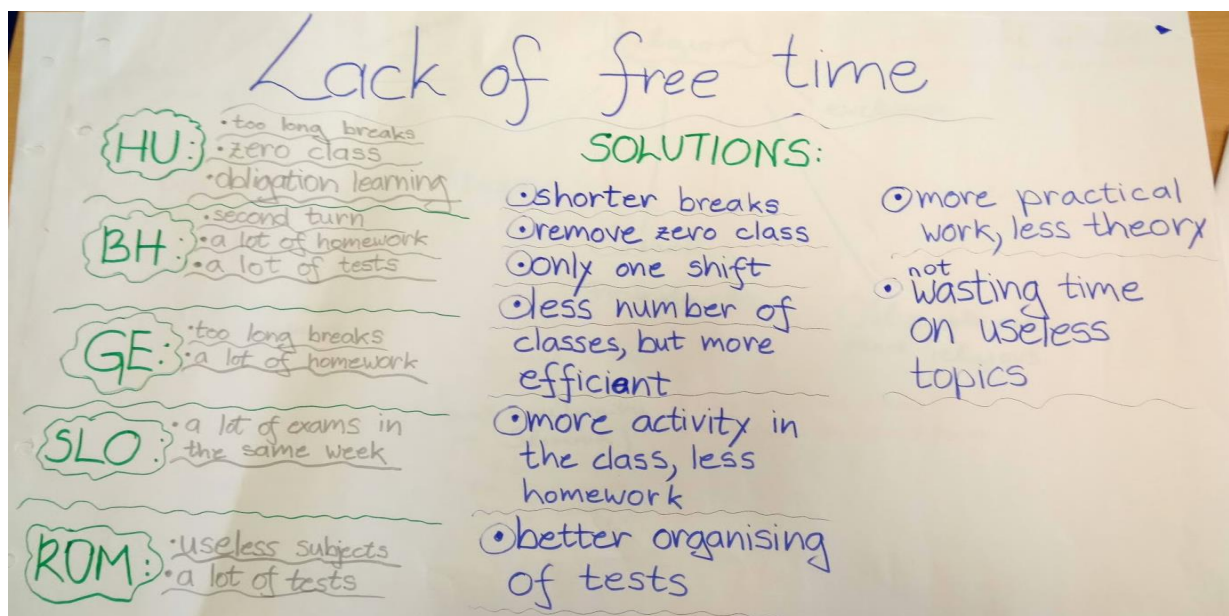 Lack of free time
HU:
• too long breaks
• zero class
• obligation learning
BH:
• second turn
• a lot of homework
• a lot of tests
GE:
• too long breaks
• a lot of homework
SLO:
• a lot of exams in
the same week
ROM:
• useless subjects
• a lot of tests
SOLUTIONS:
• shorter breaks
• remove zero class
• only one shift
• less number of
classes, but more
efficient
• more activity in
the class, less
homework
• better organising
of tests
• more practical
work, less theory
• not wasting time
on useless
topics